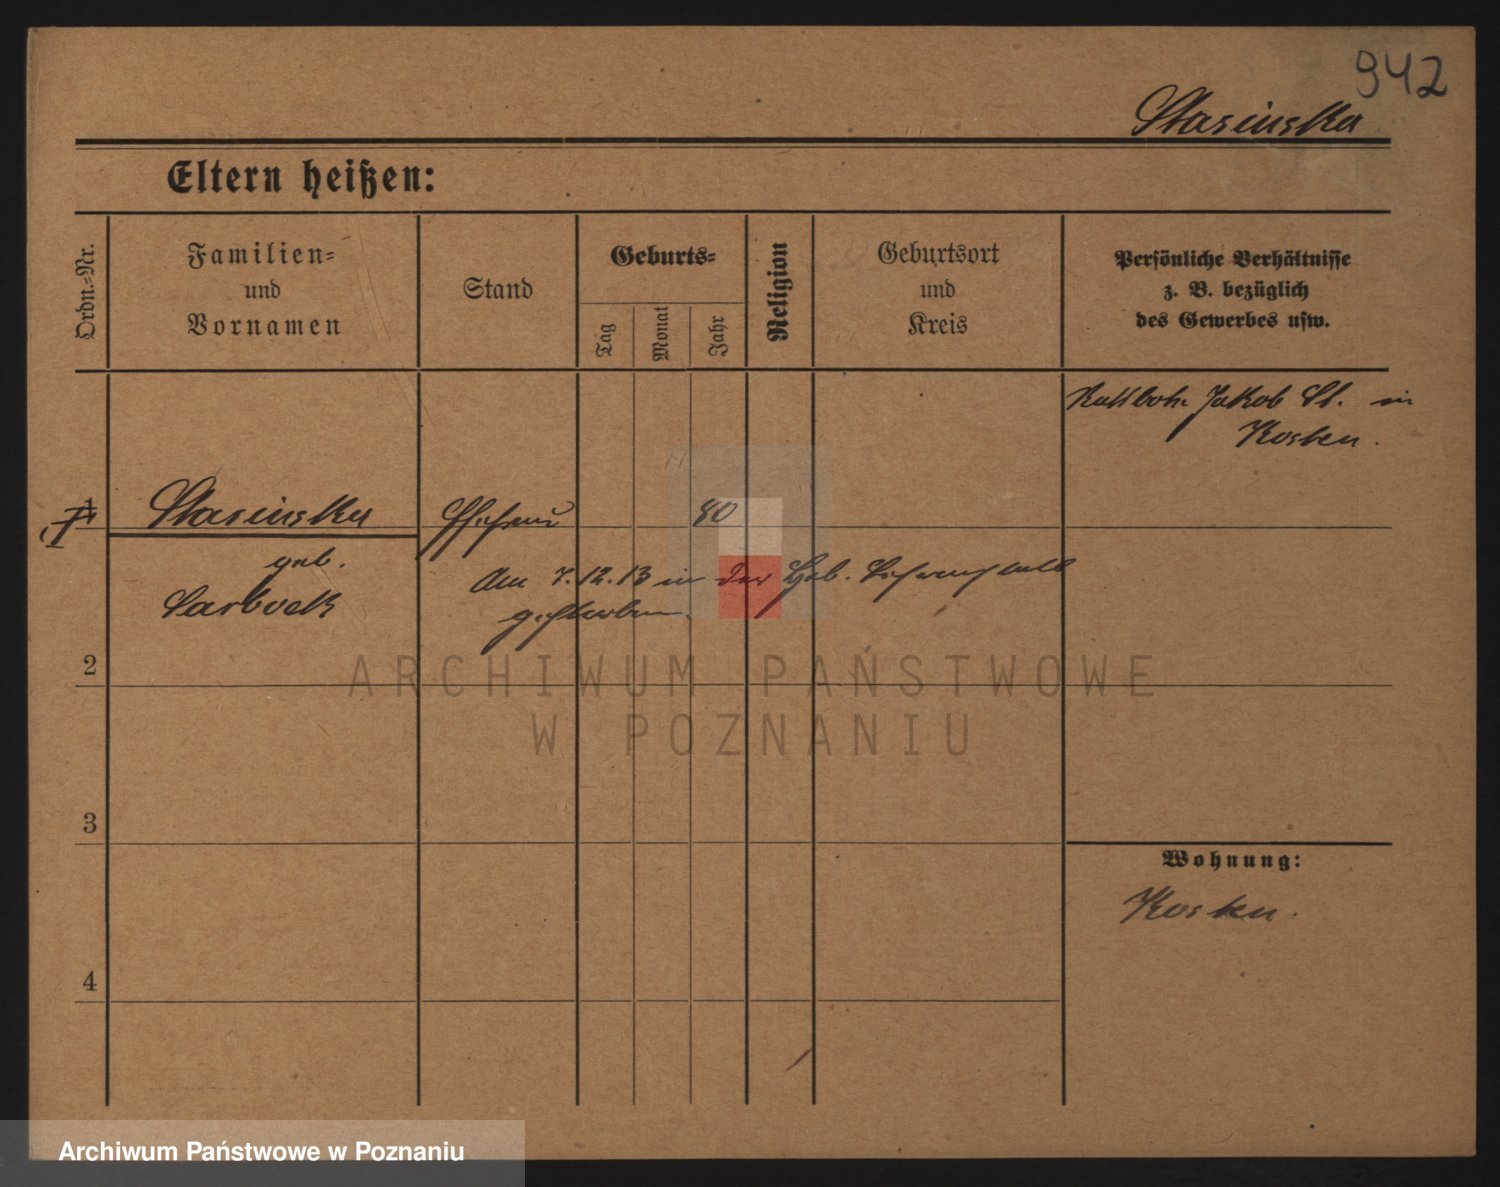 942
Stasinska
Eltern heißen:
Ordn.-Nr.
Familien-
und
Vornamen
Stand
Geburts-
Tag
Monat
Jahr
Religion
Geburtsort
und
Kreis
Persönliche Verhältnisse
z. B. bezüglich
des Gewerbes usw.
Jakob St. in
Kosten.
1
Stasinska
Ehefrau
geb.
Sarbock
Am 7.12.13 in der
gestorben.
2
3
4
Wohnung:
Kosten.
ARCHIWUM PAŃSTWOWE
W POZNANIU
Archiwum Państwowe w Poznaniu